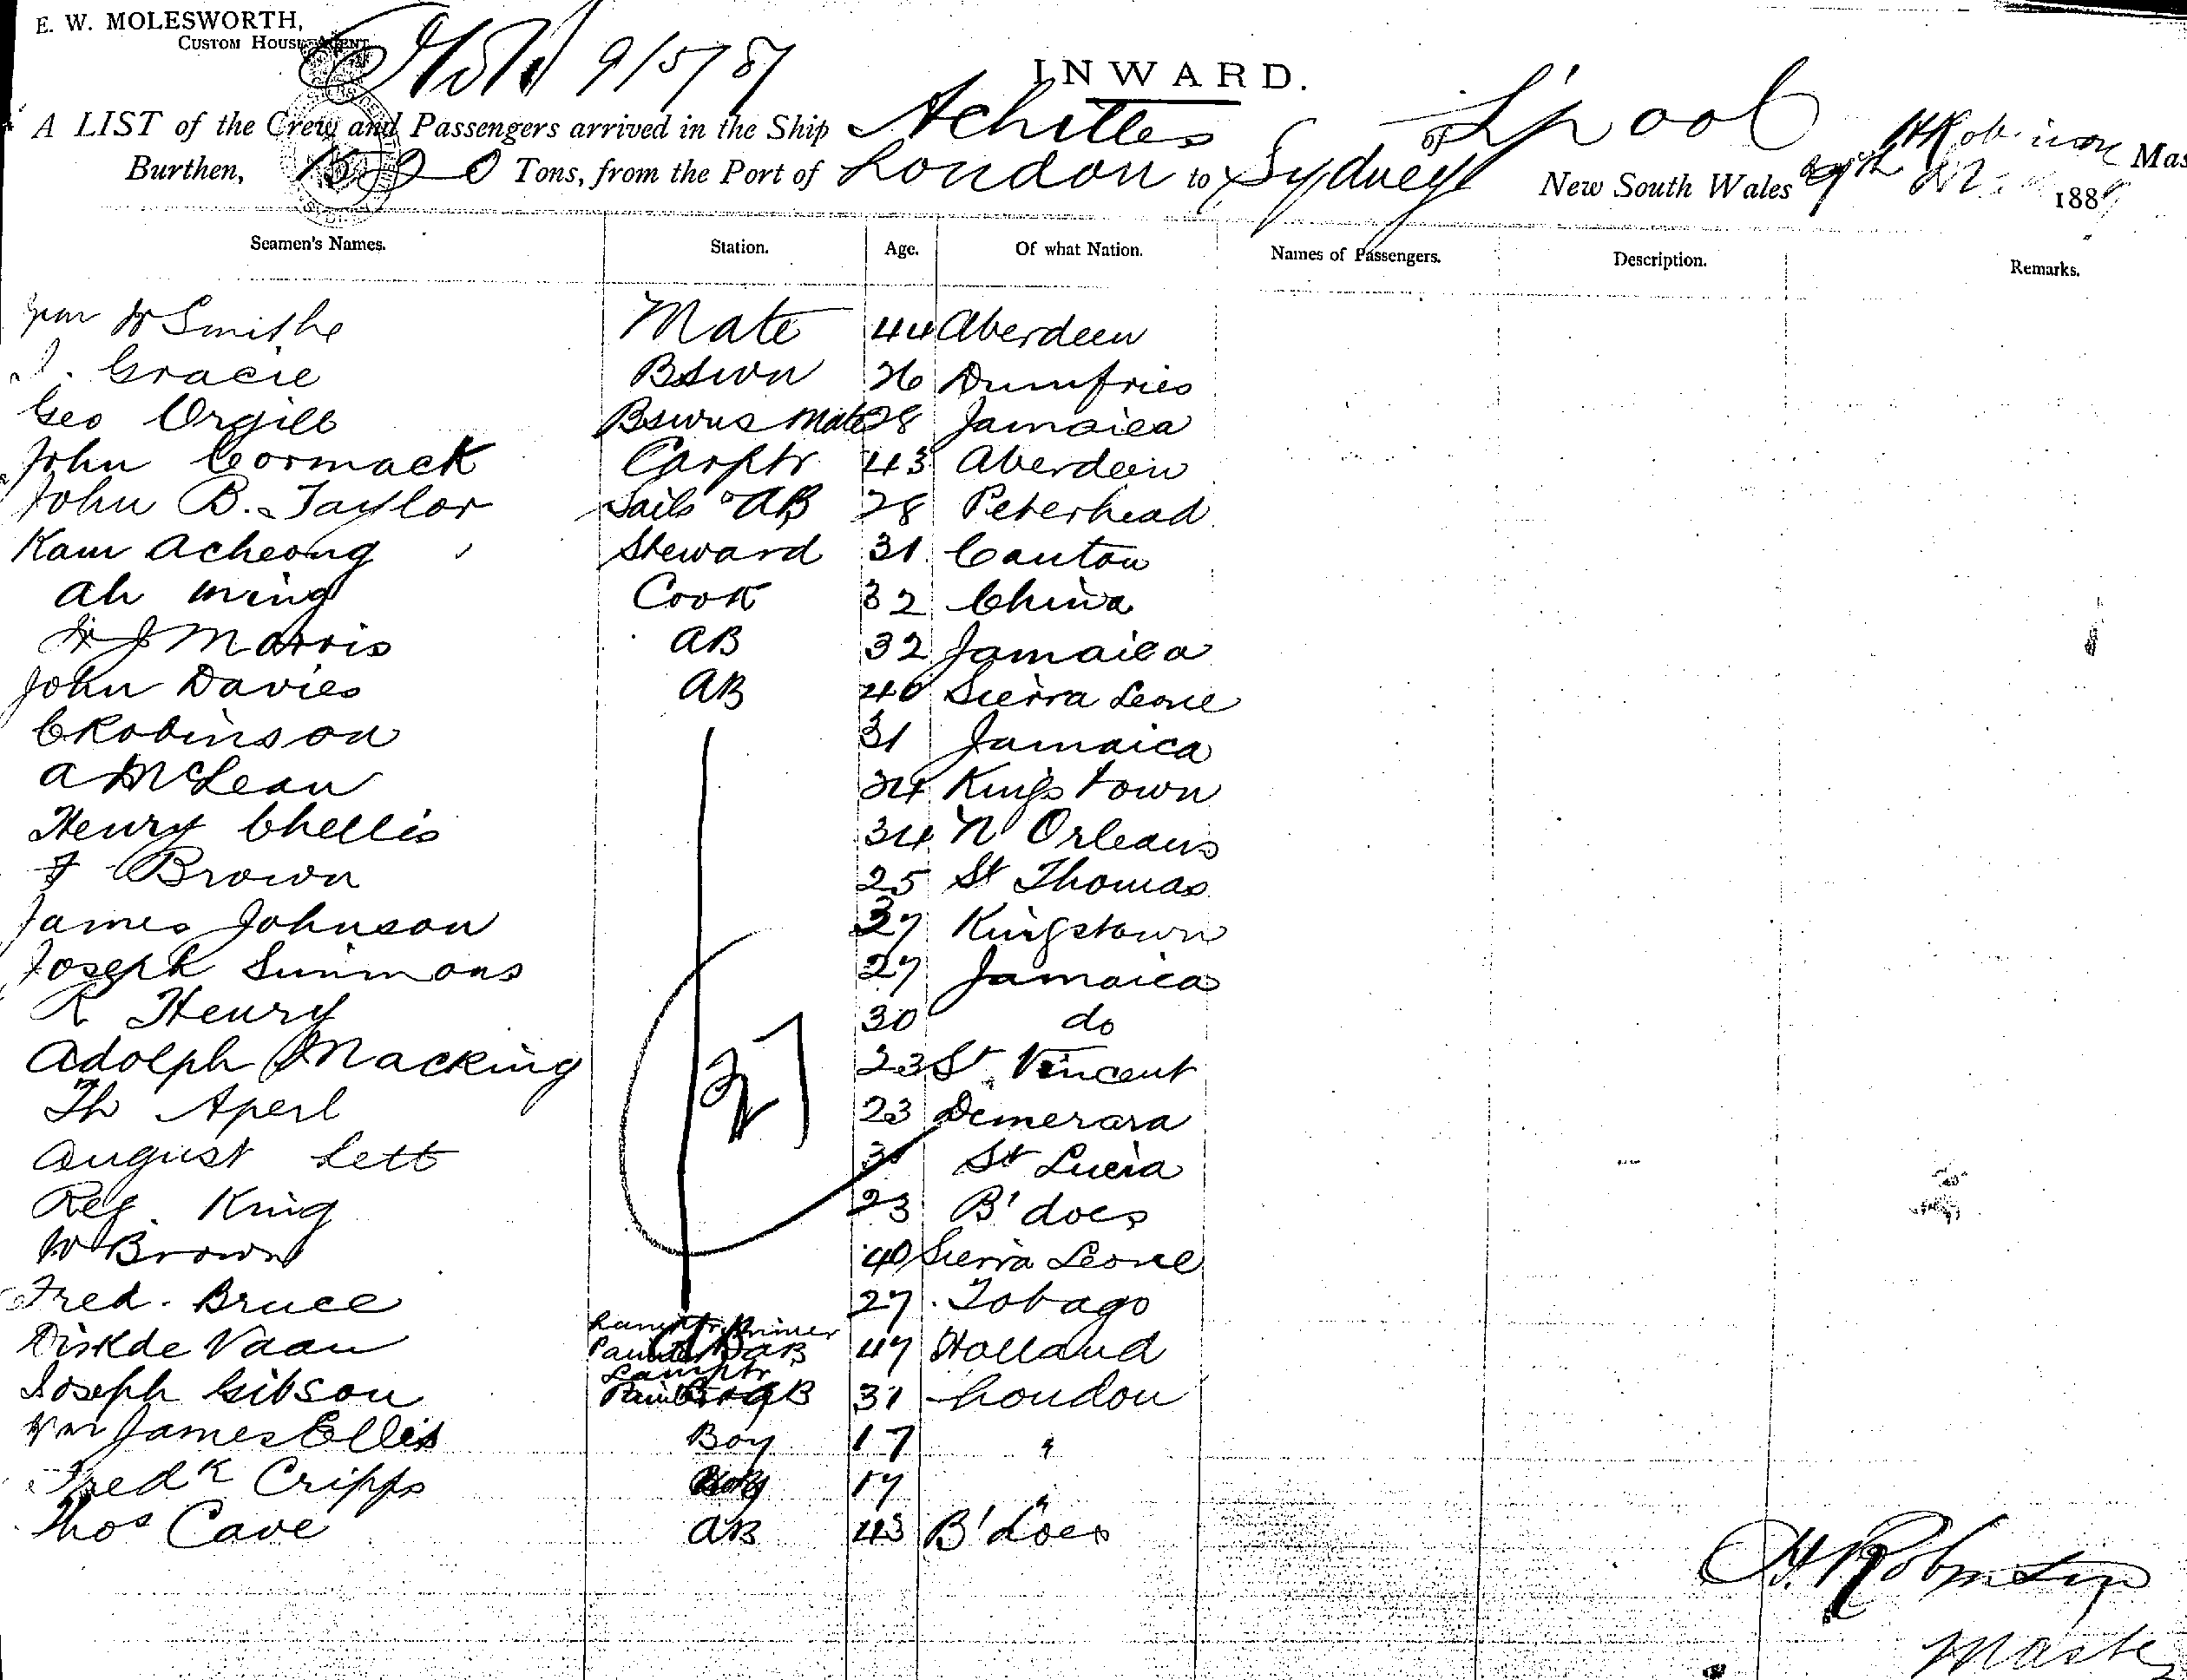 E. W. MOLESWORTH,
CUSTOM HOUSE AGENT
9/5/87
INWARD.
A LIST of the Crew and Passengers arrived in the Ship Achilles of L'pool H Robinson Mas
Burthen, 1520 Tons, from the Port of London to Sydney New South Wales 188
Seamen's Names. Station. Age. Of what Nation. Names of Passengers. Description. Remarks.
W Smithe Mate 44 Aberdeen
J. Gracie BSwn 26 Dumfries
Geo Orgill Bswns Mate 28 Jamaica
John Cormack Carptr 43 Aberdeen
John B. Taylor Sails & AB 28 Peterhead
Kam Acheong Steward 31 Canton
Ah ming Cook 32 China
W J Morris AB 32 Jamaica
John Davies AB 40 Sierra Leone
C Robinson 31 Jamaica
A McLean 24 Kings town
Henry Chellis 34 N Orleans
F Brown 25 St Thomas
James Johnson 27 Kingstown
Joseph Simmons 27 Jamaica
R Henry 30 do
Adolph Macking 23 St Vincent
27
Th Aperl 23 Demerara
August Lett St Lucia
Reg. King 23 B'does
W Brown 40 Sierra Leone
Fred. Bruce 27 Tobago
Dirk de Vaan Painter & AB 47 Holland
Lamptr
Joseph Gibson Painter & AB 31 London
Wm James Ellis Boy 17 "
Fredk Cripps Boy 17 "
Thos Cave AB 43 B'does
H. Robinson
Master